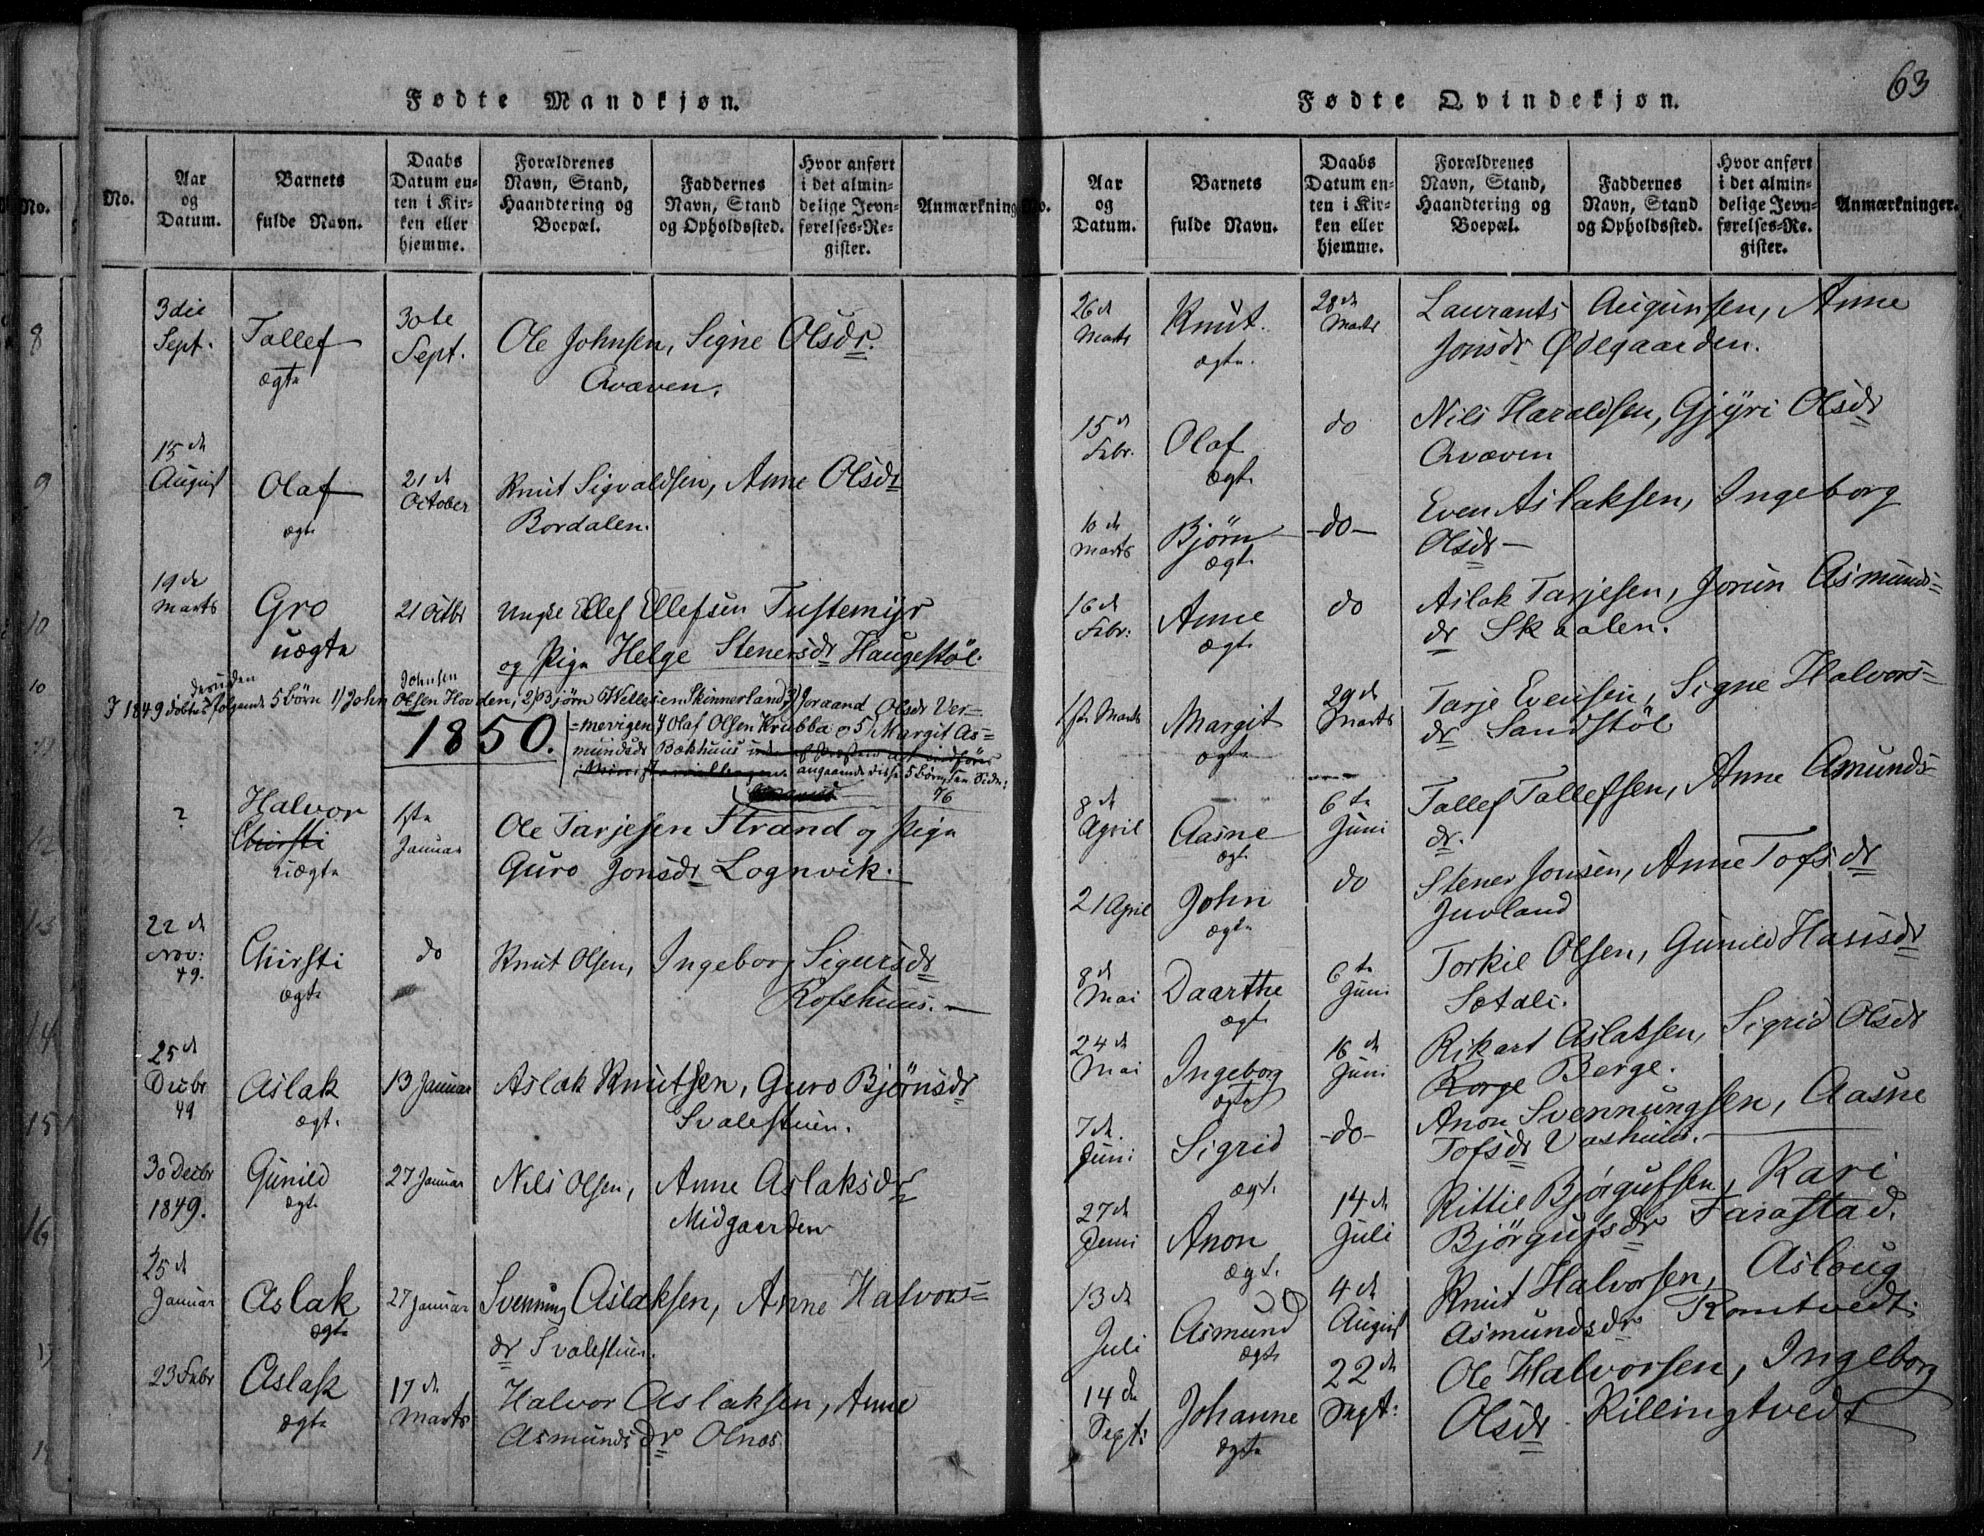 Fødte Mandkjøn.
No.
Aar og Datum.
Barnets fulde Navn.
Daabs Datum enten i Kirken eller hjemme.
Forældrenes Navn, Stand, Haandtering og Boepæl.
Faddernes Navn, Stand og Opholdssted.
Hvor anført i det almindelige Jevnførelses-Register.
Anmærkning
3die Sept. Tallef ægte 30te Sept. Ole Johnsen, Signe Olsdr.
Qvæven.
15de August Olaf ægte 21de October Knut Sigvaldsen, Anne Olsdr
Bordalen.
19de Marts Gro uægte 21 octbr Ungke Ellef Ellefsen Tustemyr
og Pige Helge Stenersdr Haugestöl.
I 1849 döbtes desuden følgende 5 børn 1) John Johnsen Olsen Hovden, 2) Bjørn Wellesien Skinnerland, 3) Joraand Olsdr Ver-
=mevigen 4 Olaf Olsen Krubba o 5) Margit As=
mundsdr Bækhuus
angaaende disse 5 Børn, see Side:
76
1850.
? Halvor Chirsti uægte 1ste Januar Ole Tarjesen Strand og Pige
Guro Jonsdr Lognvik.
22de Nov: 49. Chirsti ægte do Knut Olsen, Ingeborg Sigursdr
Rofshuus.
25de Decbr 49 Aslak ægt. 13 Januar Aslak Knutsen, Guro Bjørnsdr
Svalestuen.
30 Decbr 1849. Gunild ægt. 27 Januar Nils Olsen, Anne Aslaksdr
Midgaarden
25de Januar Aslak ægte 27 januar Svennung Aslaksen, Anne Halvors=
dr Svalestuen.
23 Febr Aslak ægte 17de Marts Halvor Aslaksen, Anne
Asmundsdr Olnes
63
Fødte Qvindekjøn.
No.
Aar og Datum.
Barnets fulde Navn.
Daabs Datum enten i Kirken eller hjemme.
Forældrenes Navn, Stand, Haandtering og Boepæl.
Faddernes Navn, Stand og Opholdssted.
Hvor anført i det almindelige Jevnførelses-Register.
Anmærkninger.
26de Marts Knut. ægte. 28de Marts Laurants Augunsen, Anne
Jonsdr Ødegaarden.
15de Febr. Olaf ægte do Nils Haraldsen, Gjyri Olsdr
Qvæven
10de Marts Bjørn ægte -do- Even Aslaksen, Ingeborg
Olsdr
16de Febr: Anne ægte do Aslak Tarjesen, Jorun Asmunds=
dr Skaalen.
1ste Marts Margit ægte 29de Marts Tarje Evensen, Signe Halvors=
dr Sandstöl
8de April Aasne ægte 6te Juni Tallef Tallefsen, Anne Amunds=
dr.
21 April John ægte do Stener Jonsen, Anne Tofsdr
Juvland
8de Mai Daarthe ægt. 6te Juni Torkil Olsen, Gunild Hansdr
Sætali.
24de Mai Ingeborg ægte 16de Juni Rikart Aslaksen, Sigrid Olsdr
Korge Berge.
7de Juni Sigrid ægt. -do- Anon Svennungsen, Aasne
Tofsdr Vashuus.
27de Juni Anon ægt. 14de Juli Kittil Bjørgufsen, Kari
Bjørgufsdr Farastad.
13de Juli Asmund ægte 4de August Knut Halvorsen, Asloug
Asmundsdr Romtvedt.
14de Sept: Johanne ægte 22de Sept: Ole Halvorsen, Ingeborg
Olsdr Killingtvedt